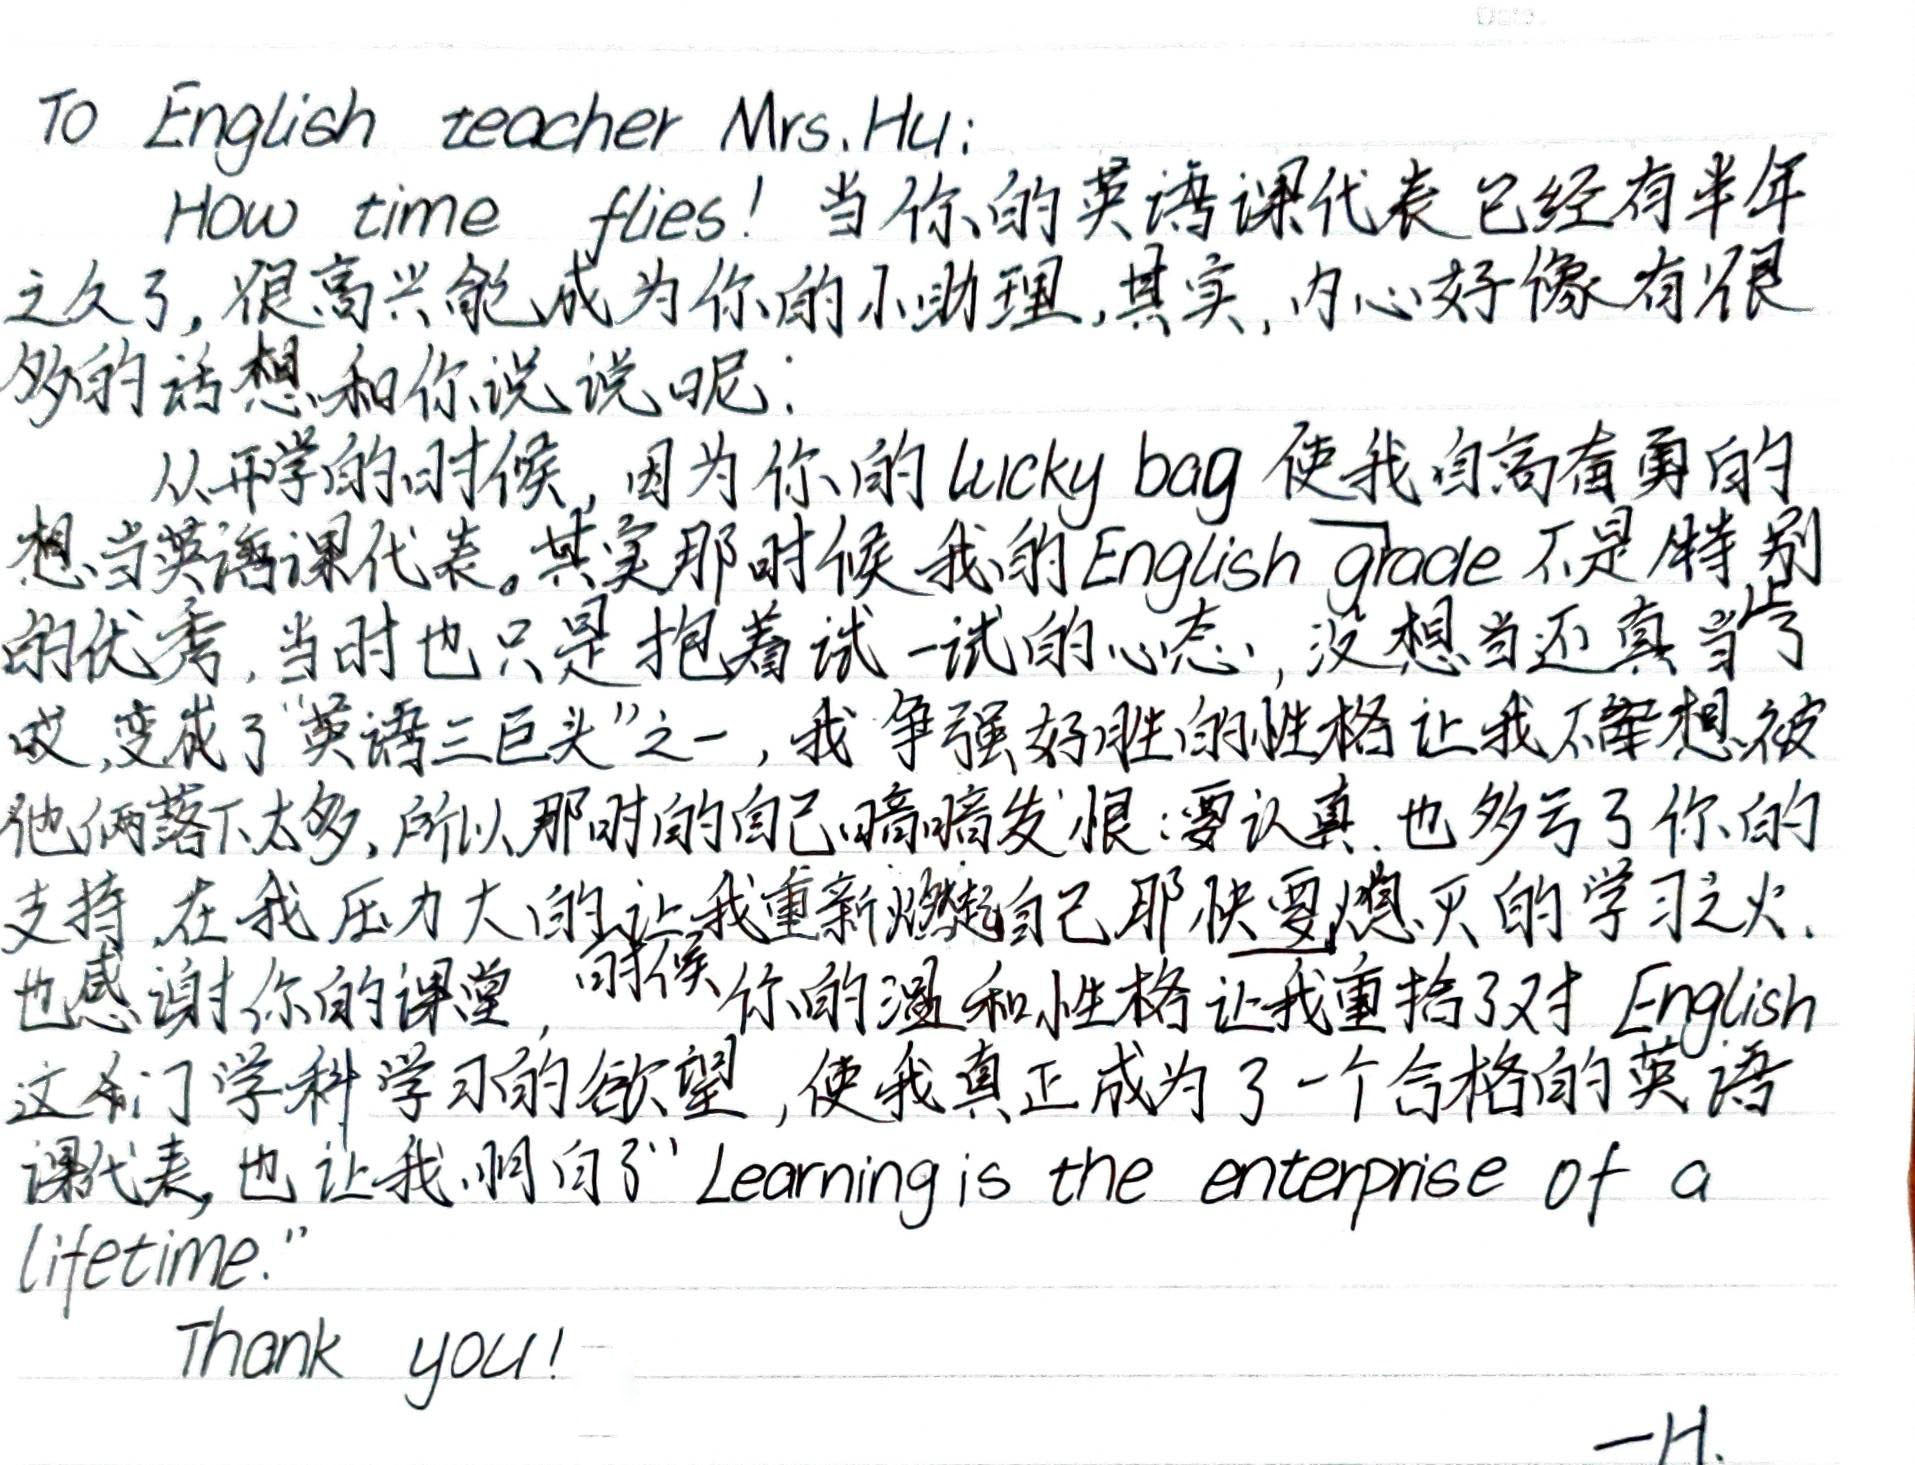 Date.
To English teacher Mrs. Hu:
How time flies! 当你的英语课代表已经有半年
之久了, 很高兴能成为你的小助理, 其实, 内心好像有很
多的话想和你说说呢:
从开学的时候, 因为你的 lucky bag 使我自高奋勇的
想当英语课代表。其实那时候我的 English grade 不是特别
的优秀, 当时也只是抱着试一试的心态, 没想当还真当上了
哎, 变成了“英语三巨头”之一, 我争强好胜的性格让我不想被
他俩落下太多, 所以那时的自己暗暗发恨: 要认真. 也多亏了你的
支持, 在我压力大的时候让我重新燃起自己那快要熄灭的学习之火.
也感谢你的课堂, 你的温和性格让我重拾了对 English
这门学科学习的欲望, 使我真正成为了一个合格的英语
课代表, 也让我明白了“Learning is the enterprise of a
lifetime.”
Thank you!
—H.